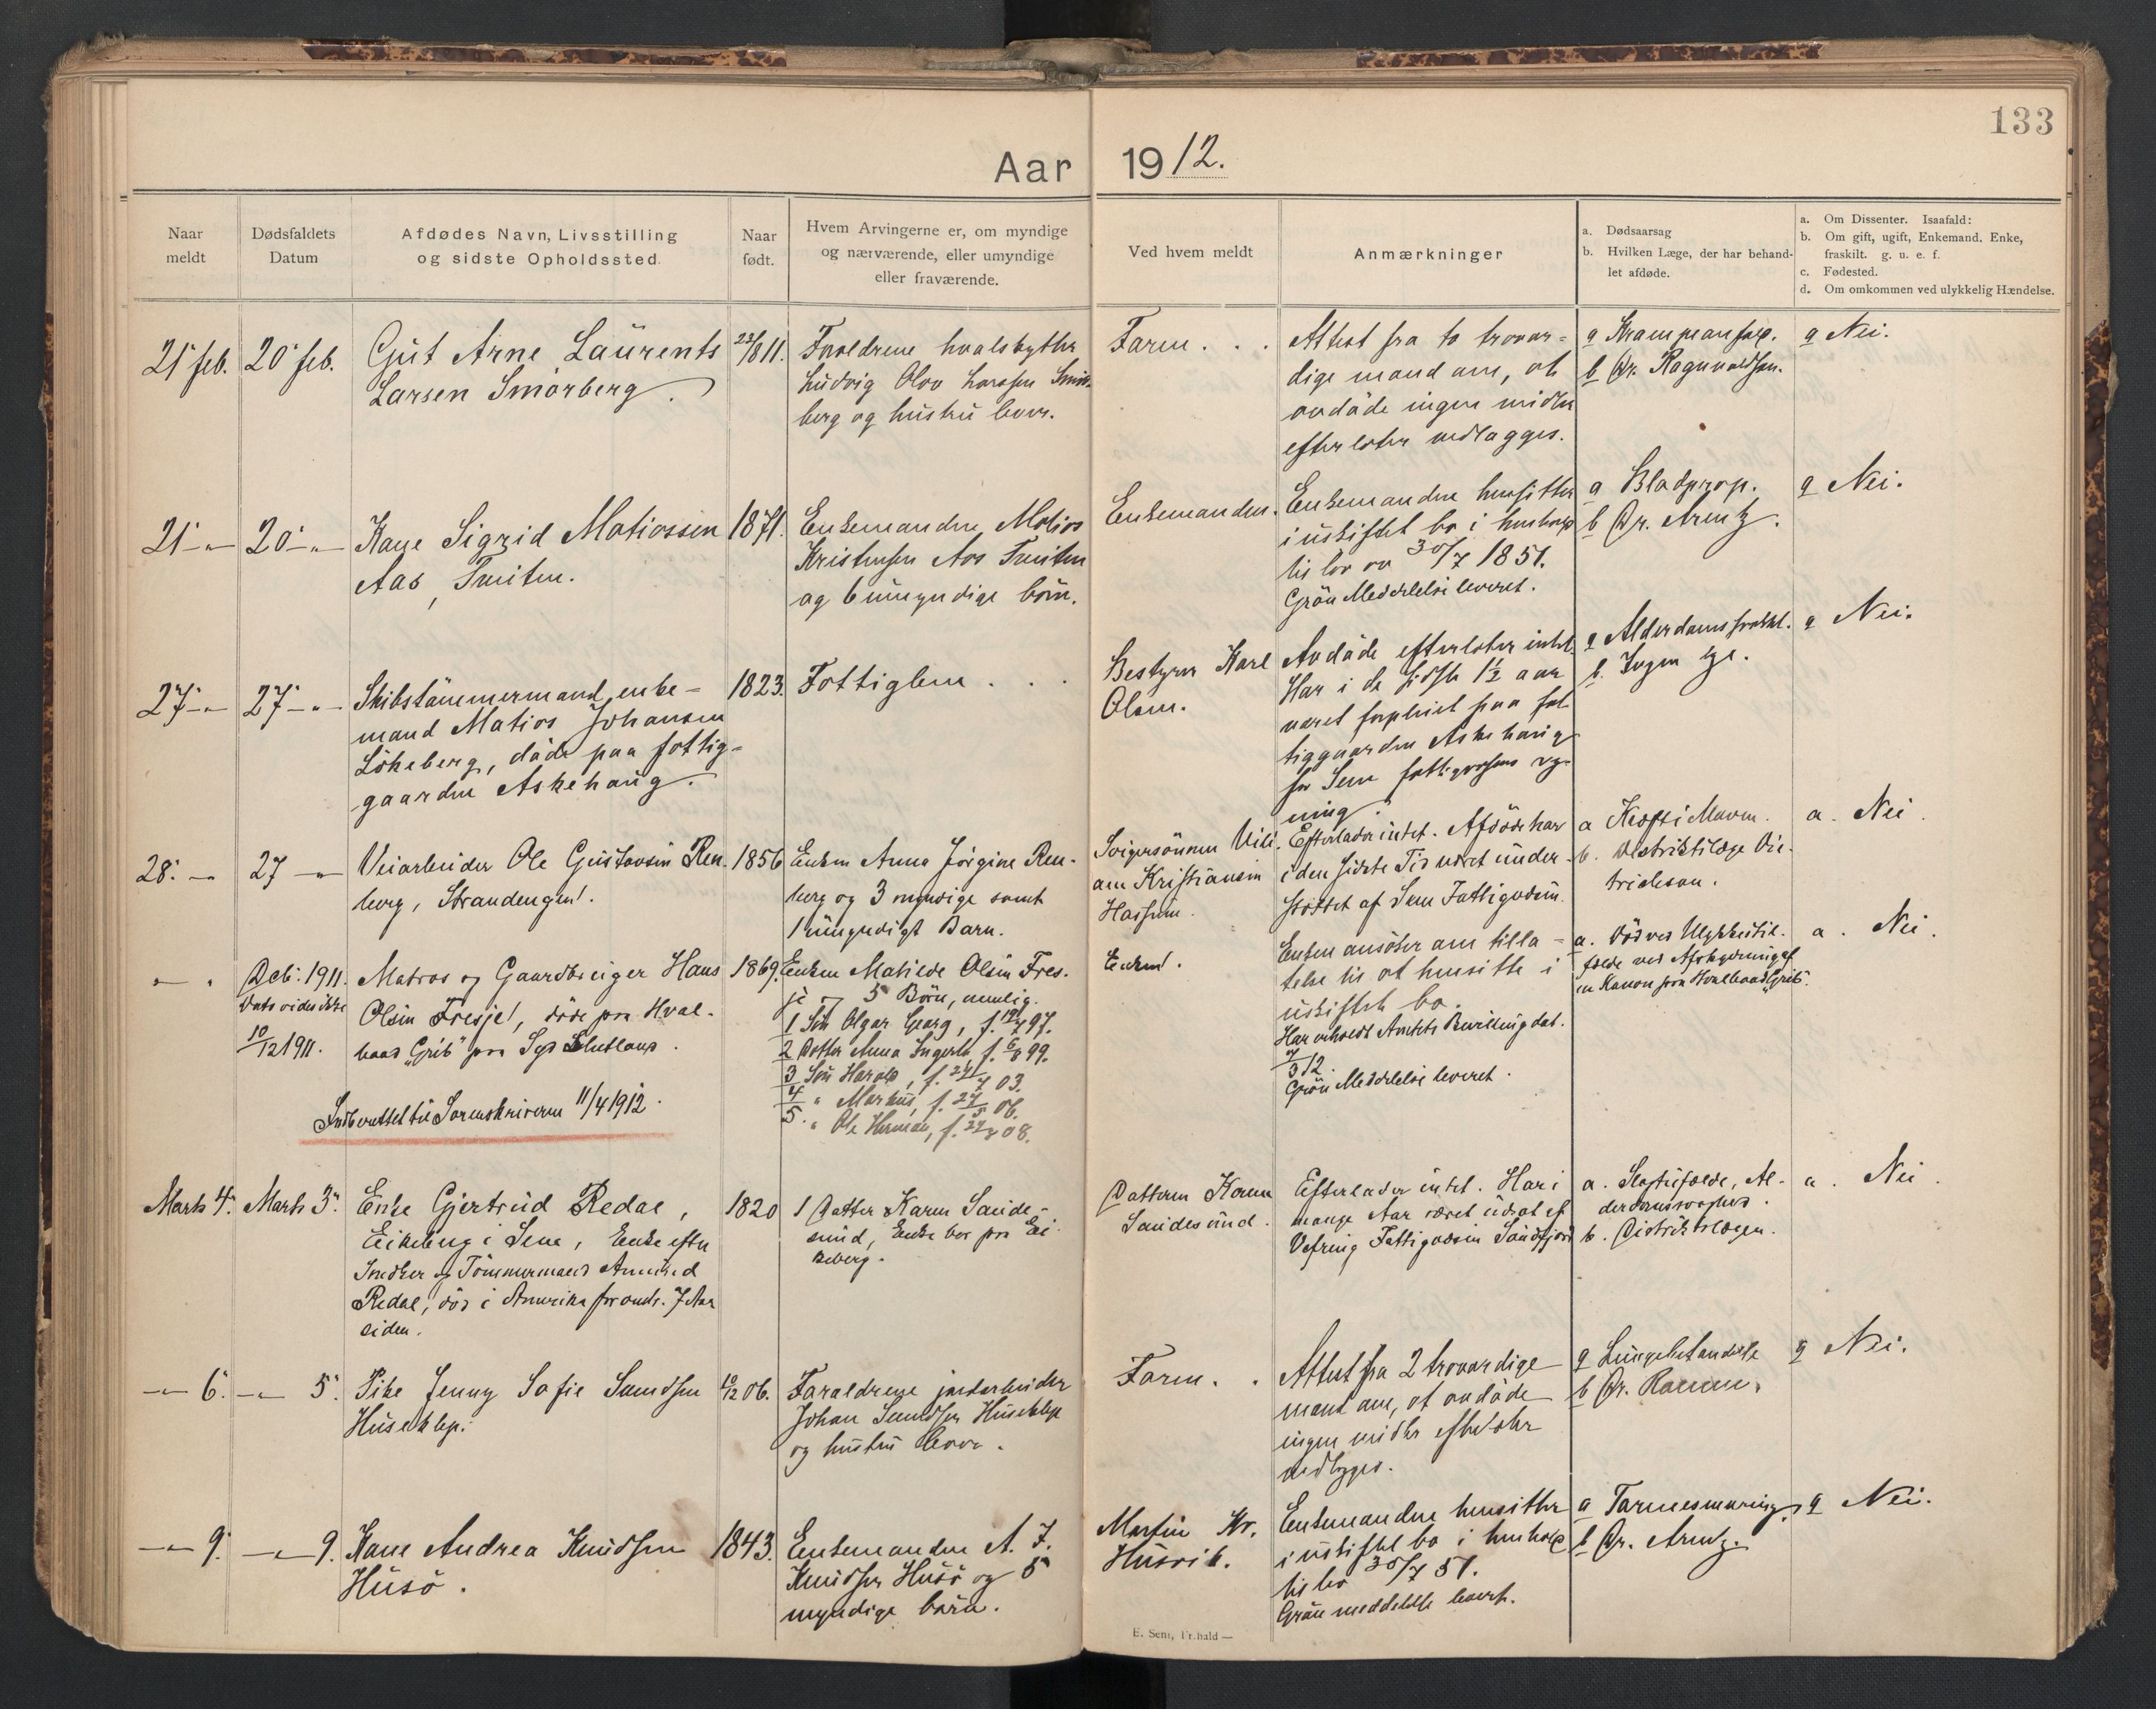 133
Aar 1912.
Naar
meldt
Dødsfaldets
Datum
Afdødes Navn, Livsstilling
og sidste Opholdssted
Naar
født.
Hvem Arvingerne er, om myndige
og nærværende, eller umyndige
eller fraværende.
Ved hvem meldt
Anmærkninger
a. Dødsaarsag
b. Hvilken Læge, der har behand-
let afdøde.
a. Om Dissenter. Isaafald:
b. Om gift, ugift, Enkemand. Enke,
fraskilt. g. u. e. f.
c. Fødested.
d. Om omkommen ved ulykkelig Hændelse.
21 feb.
20 feb.
Gut Arne Laurents
Larsen Smørberg.
23/8 11.
Foreldrene hvalskytter
Ludvig Olav Larssen Smør-
berg og hustru lever.
Faren . . .
Attest fra to trovær-
dige mænd om, at
avdøde ingen midler
efterlater vedlægges.
a Krampeanfald.
b Dr. Ragnvaldsen.
a Nei.
21 -"-
20 -"-
Kone Sigrid Matiassen
Aas, Tveiten.
1871.
Enkemanden Matias
Kristensen Aas Tveiten
og 6 umyndige børn.
Enkemanden.
Enkemanden hensitter
i uskiftet bo i henhold
til lov av 30/7 1851.
Grøn Meddelelse leveret.
a Blodprop.
b Dr. Arentz.
a Nei.
27 -"-
27 -"-
Skibstømmermand, enke-
mand Matias Johansen
Løkeberg, døde paa fattig-
gaarden Askehaug.
1823.
Fattiglem . . .
Bestyrer Karl
Olsen.
Avdøde efterlater intet.
Har i de sidste 1½ aar
været forpleiet paa fat-
tiggaarden Askehaug
for Sem fattigvæsens reg-
ning.
a Alderdomssvakh.
b. Ingen lge.
a Nei.
28. -"-
27 -"-
Veiarbeider Ole Gustavsen Ren-
berg, Strandengen.
1856
Enken Anna Jørgine Ren-
berg og 3 myndige samt
1 umyndigt Barn.
Svigersønnen Vili-
am Kristiansen
Hassum.
Efterlader intet. Afdøde har
i den sidste Tid været under-
støttet af Sem Fattigvæsen.
a Kræft i Maven.
b. Distriktslæge Die-
trichson.
a. Nei.
-"-
Dcb: 1911.
Dato vides ikke
10/12 1911.
Matros og Gaardbruger Hans
Olsen Fresje, døde paa Hval-
baad "Grib" paa Syd Shetland.
Indberettet til Sorenskriveren 11/4 1912.
1869.
Enken Matilde Olsen Fres-
je og 5 Børn, nemlig.
1 Søn Olgar Georg, f. 19/7 97.
2 Datter Anna Ingerb. f. 6/8 99.
3 Søn Harald, f. 24/7 03.
4 " Markus, f. 27/5 06.
5. " Ole Herman, f. 24/8 08.
Enken.
Enken ansøker om tilla-
telse til at hensitte i
uskiftet bo.
Har erholdt Amtets Bevilling dat.
7/3 12.
Grøn Meddelelse leveret.
a. Død ved Ulykkestil-
fælde ved Afskydning af
en Kanon paa Hvalbaad "Grib".
a. Nei.
Marts 4.
Marts 3.
Enke Gjertrud Redal,
Eikeberg i Sem, Enke efter
Snedker og Tømmermand Amund
Redal, død i Amerika for omtr. 7 Aar
siden.
1820
1 Datter Karen Sande-
sund, Enke bor paa Ei-
keberg.
Datteren Karen
Sandesund.
Efterlader intet. Har i
mange Aar været underst. af
Vefring Fattigvæsen Søndfjord
a. Slagtilfælde, Al-
derdomssvaghed.
b. Distriktslægen.
a. Nei.
-"- 6.
-"- 5.
Pike Jenny Sofie Sem
Husek
10/12 06.
Foreldrene jordarbeider
Johan
og hustru lever.
Faren. .
Attest fra 2 troværdige
mænd om, at avdøde
ingen midler efterlater
vedlægges.
a Lungebetændelse
b Dr. Ramm.
a Nei.
-"- 9.
-"- 9.
Kone Andrea Knudsen
Husø.
1843.
Enkemanden A. J.
Knudsen Husø og 5
myndige børn.
Martin Kr.
Husvik.
Enkemanden hensitter
i uskiftet bo i henhold
til lov 30/7 51.
Grøn meddelelse levert.
a Tarmesnøring.
b Dr. Arentz.
a Nei.
E. Sem, Fr.hald —